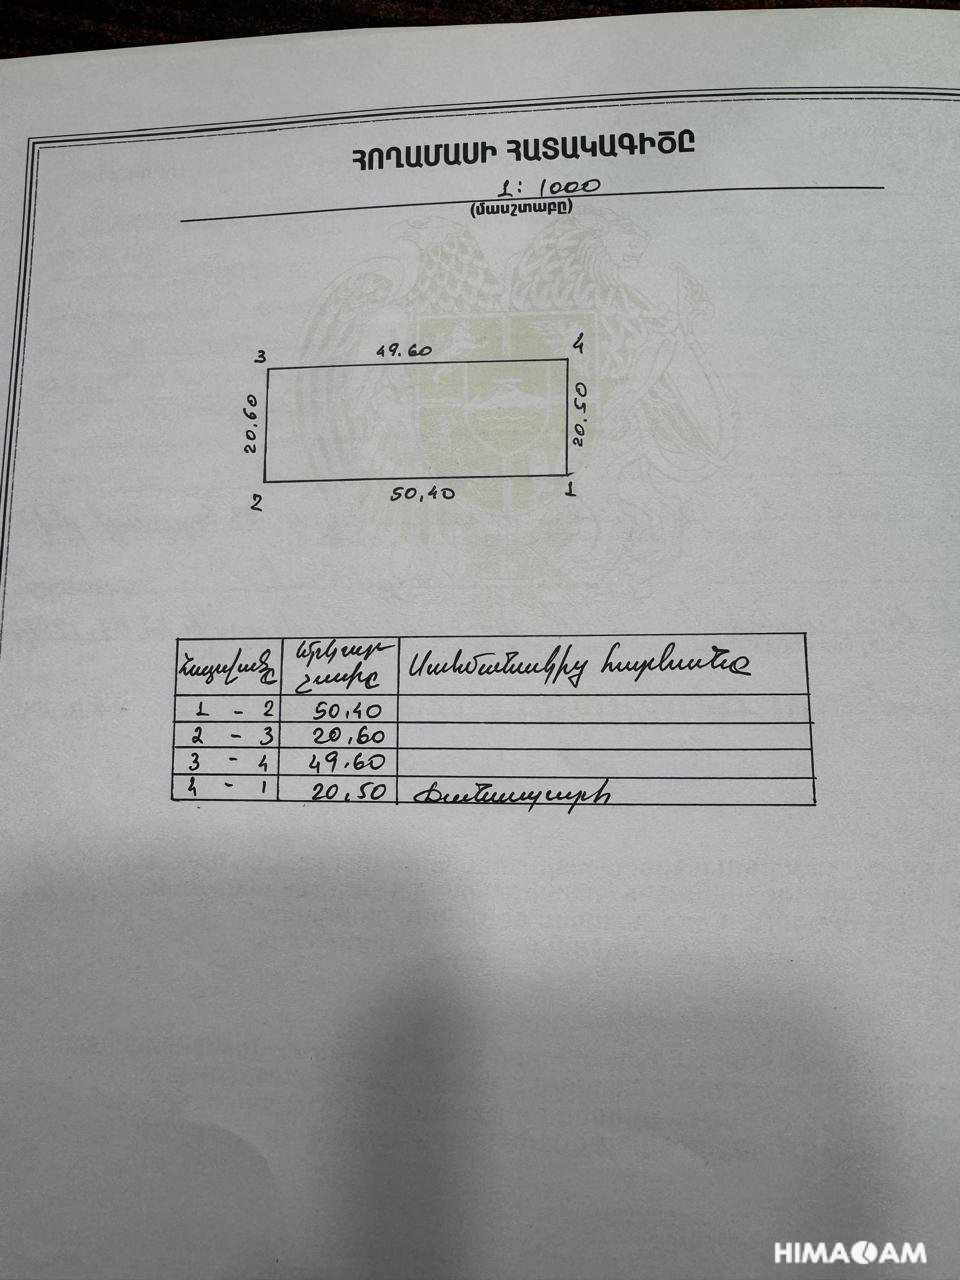 ՀՈՂԱՄԱՍԻ ՀԱՏԱԿԱԳԻԾԸ
1:1000
(մասշտաբը)
3 49.60 4
20.60 20.50
2 50,40 1
երկարությունը Սահմանակից հողմասնը
1 - 2 50,40
2 - 3 20,60
3 - 4 49.60
4 - 1 20,50 Ճանապարհ
HIMA AM